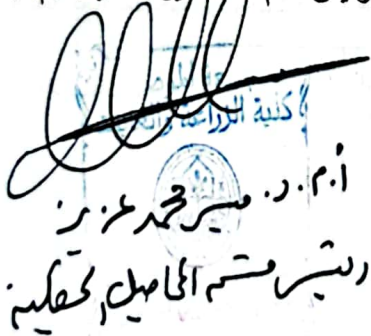 كلية الزراعة
أ.م.د. ميسر محمد عزيز
رئيس قسم المحاصيل الحقلية